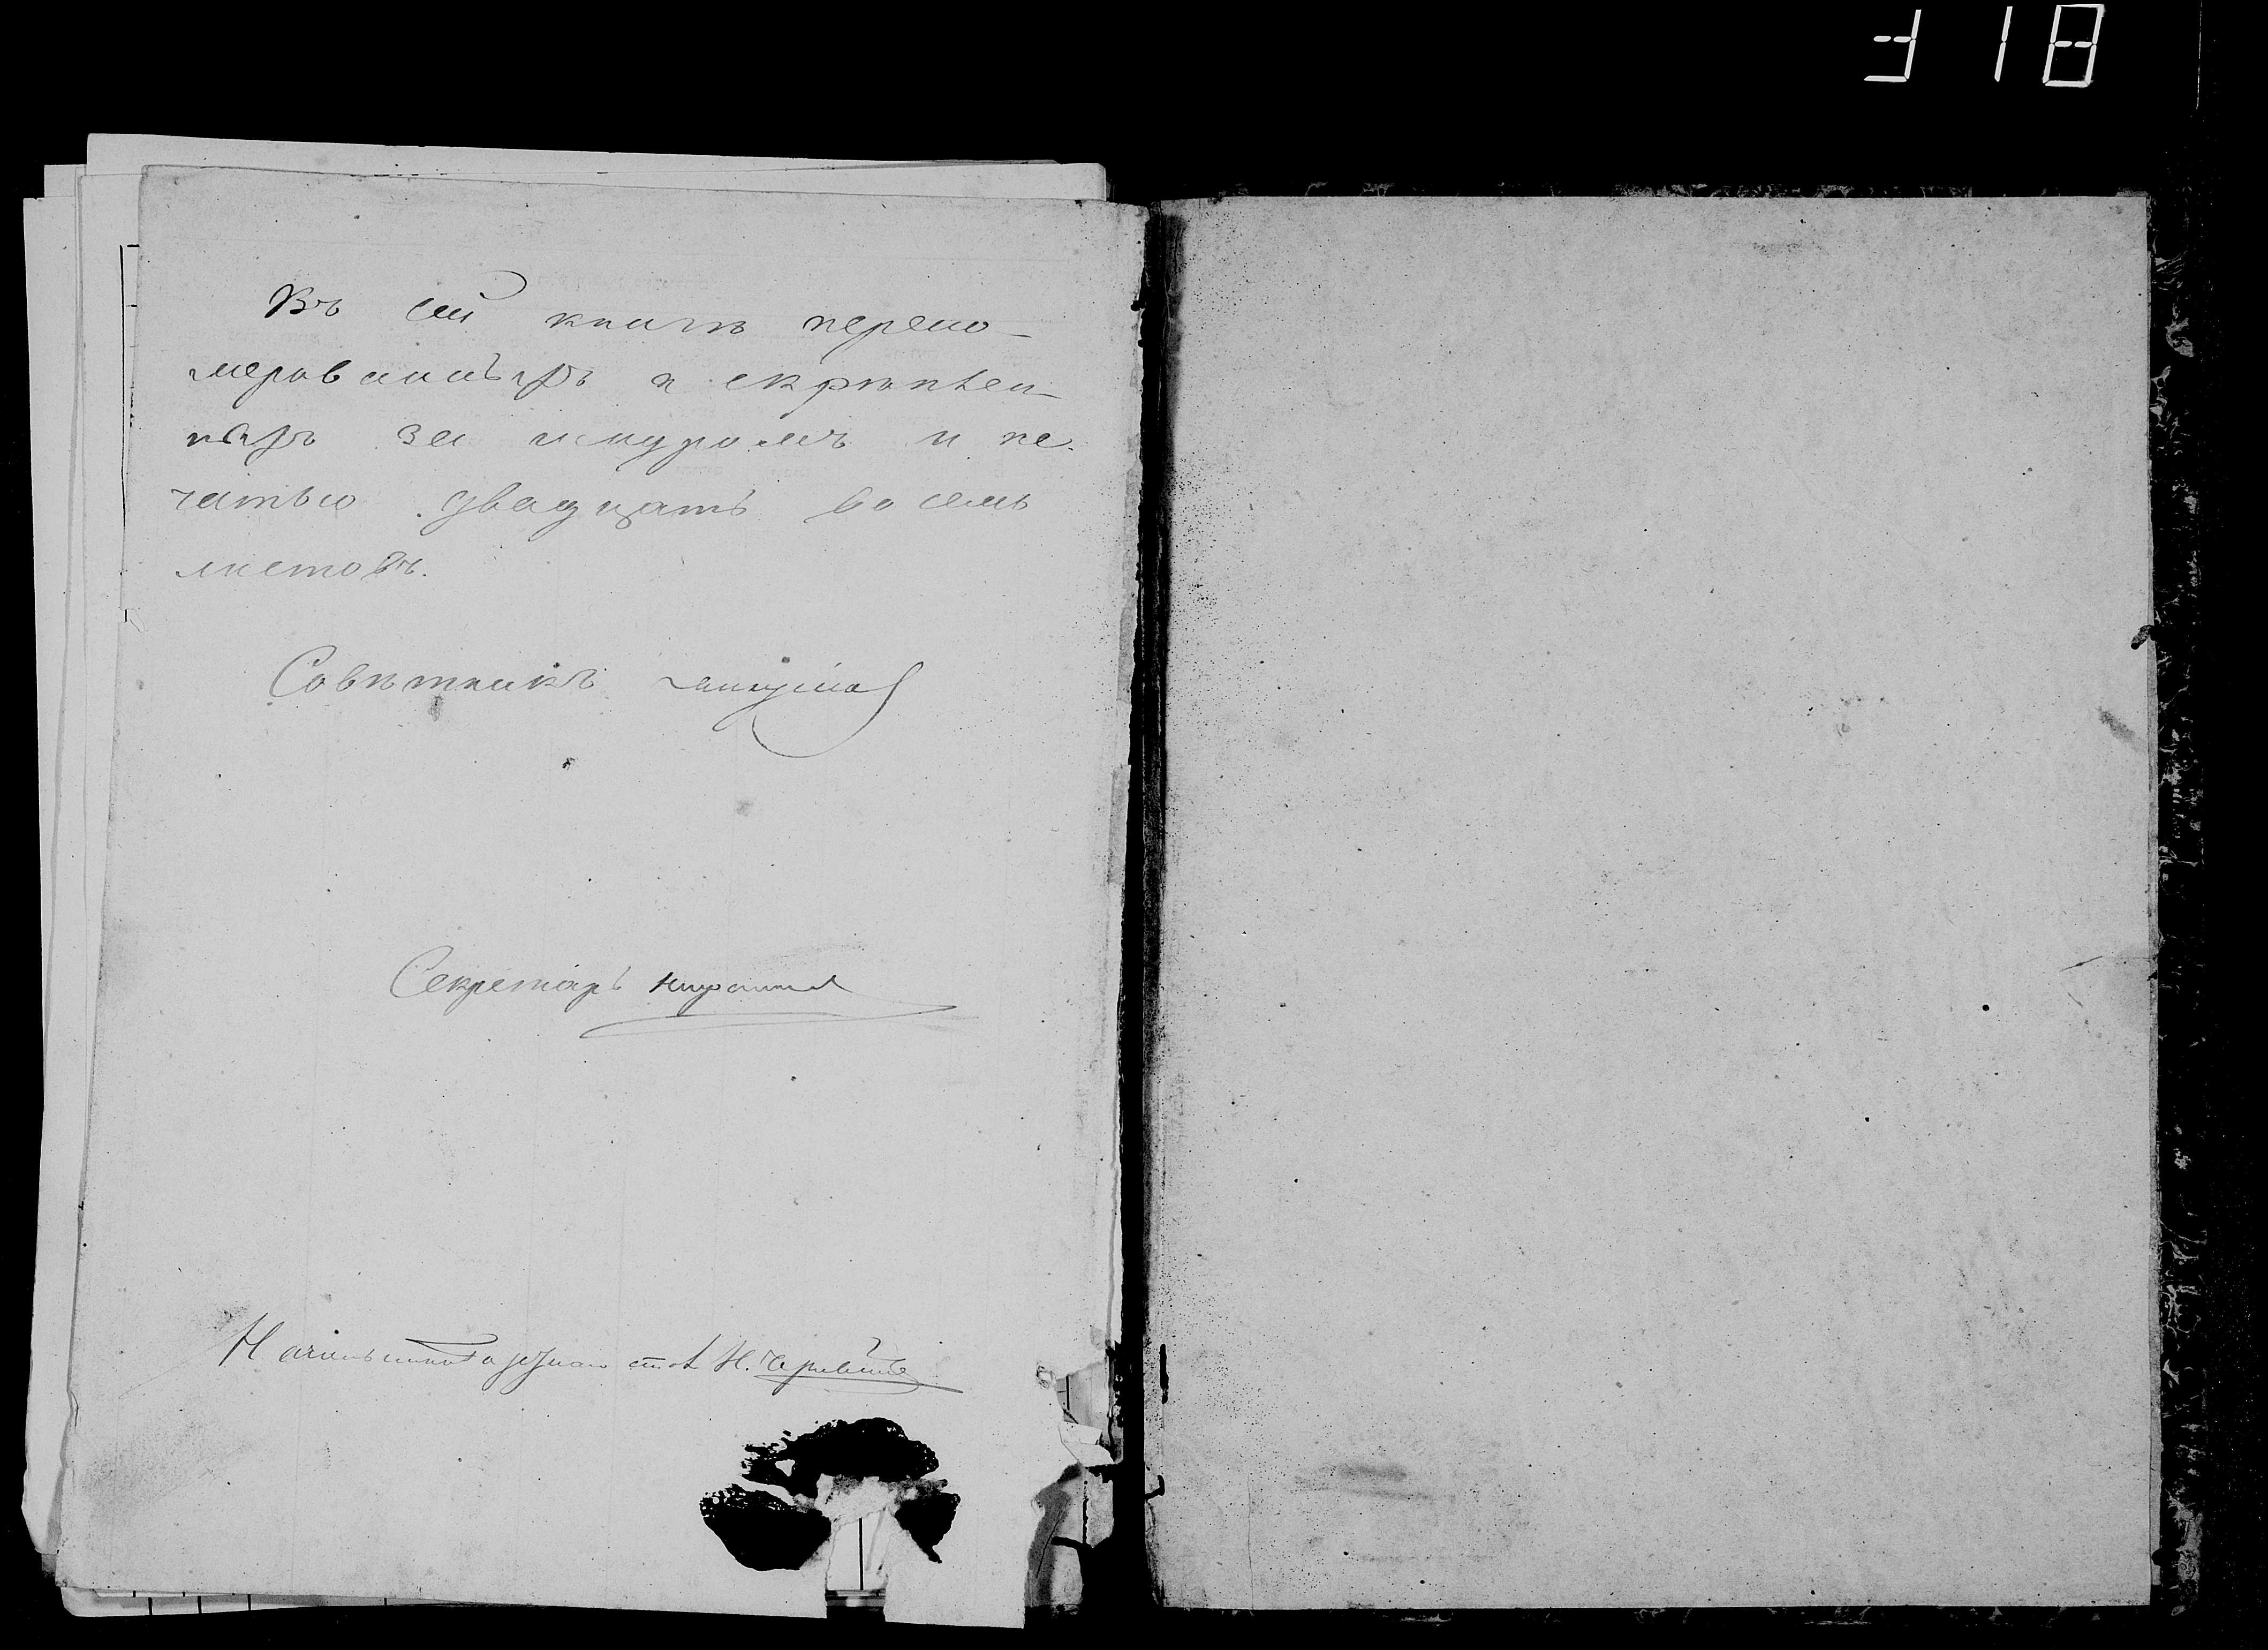 318
Въ сей книгѣ перено-
мерованныхъ и скрѣплен-
ныхъ за шнуромъ и пе-
чатью двадцать восемь
листовъ.
Совѣтникъ
Секретарь
Начальникъ стола Н.